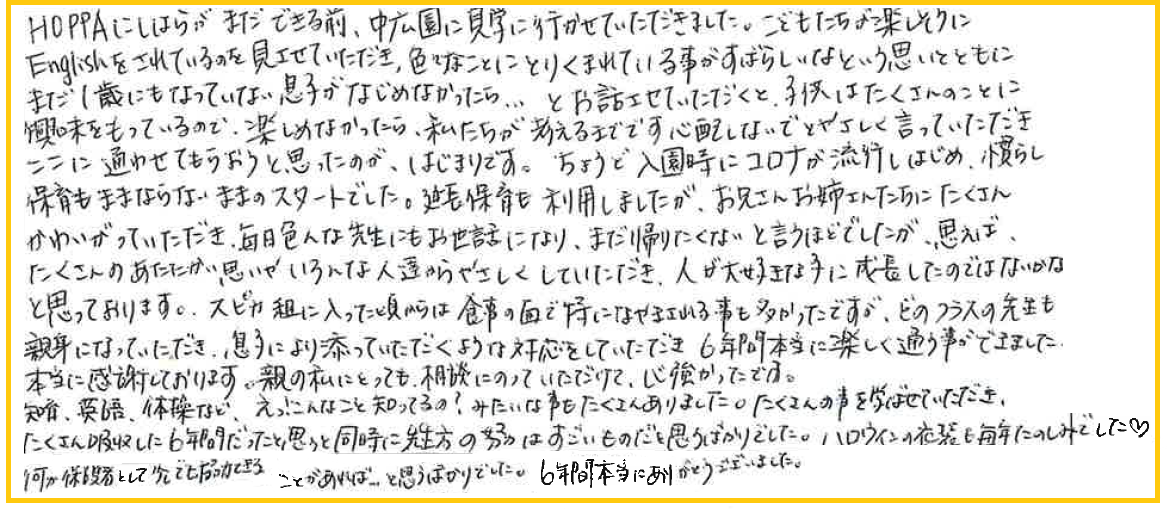 HOPPAにしはらが まだ できる前、中広園に見学に行かせていただきました。こどもたちが楽しそうに
Englishをされているのを見させていただき、色々なことにとりくまれている事がすばらしいなという思いとともに
まだ1歳にもなっていない息子がなじめなかったら... とお話させていただくと、子供はたくさんのことに
興味をもっているので、楽しめなかったら、私たちが考えるまでです心配しないでとやさしく言っていただき
ここに通わせてもらおうと思ったのが、はじまりです。ちょうど入園時にコロナが流行しはじめ、慣らし
保育もままならないままのスタートでした。延長保育も利用しましたが、お兄さんお姉さんたちにたくさん
かわいがっていただき、毎日色んな先生にもお世話になり、まだ帰りたくないと言うほどでしたが、思えば、
たくさんのあたたかい思いやいろんな人達からやさしくしていただき、人が大好きな子に成長したのではないかな
と思っております。スピカ組に入った頃からは食事の面で特になやまされる事も多かったですが、どのクラスの先生も
親身になっていただき、息子により添っていただくような対応をしていただき 6年間本当に楽しく通う事ができました。
本当に感謝しております。親の私にとっても、相談にのっていただけて、心強かったです。
知育、英語、体操など、えっ!こんなこと知ってるの?みたいな事もたくさんありました。たくさんの事を学ばせていただき、
たくさん吸収した6年間だったと思うと同時に先生方の努力はすごいものだと思うばかりでした。ハロウィンの衣装も毎年たのしみでした♡
何か保護者として少しでも協力できることがあれば...と思うばかりでした。6年間本当にありがとうございました。